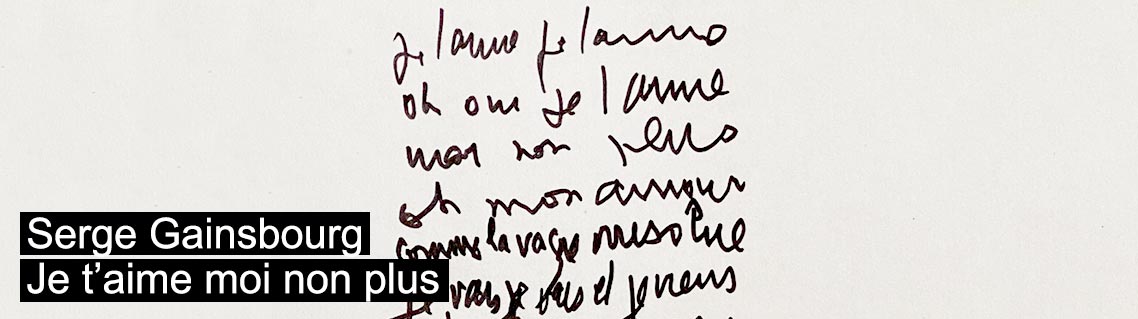 je t'aime je t'aime
oh oui je t'aime
moi non plus
oh mon amour
comme la vague irrésolue
je vais je vais et je viens
Serge Gainsbourg
Je t'aime moi non plus